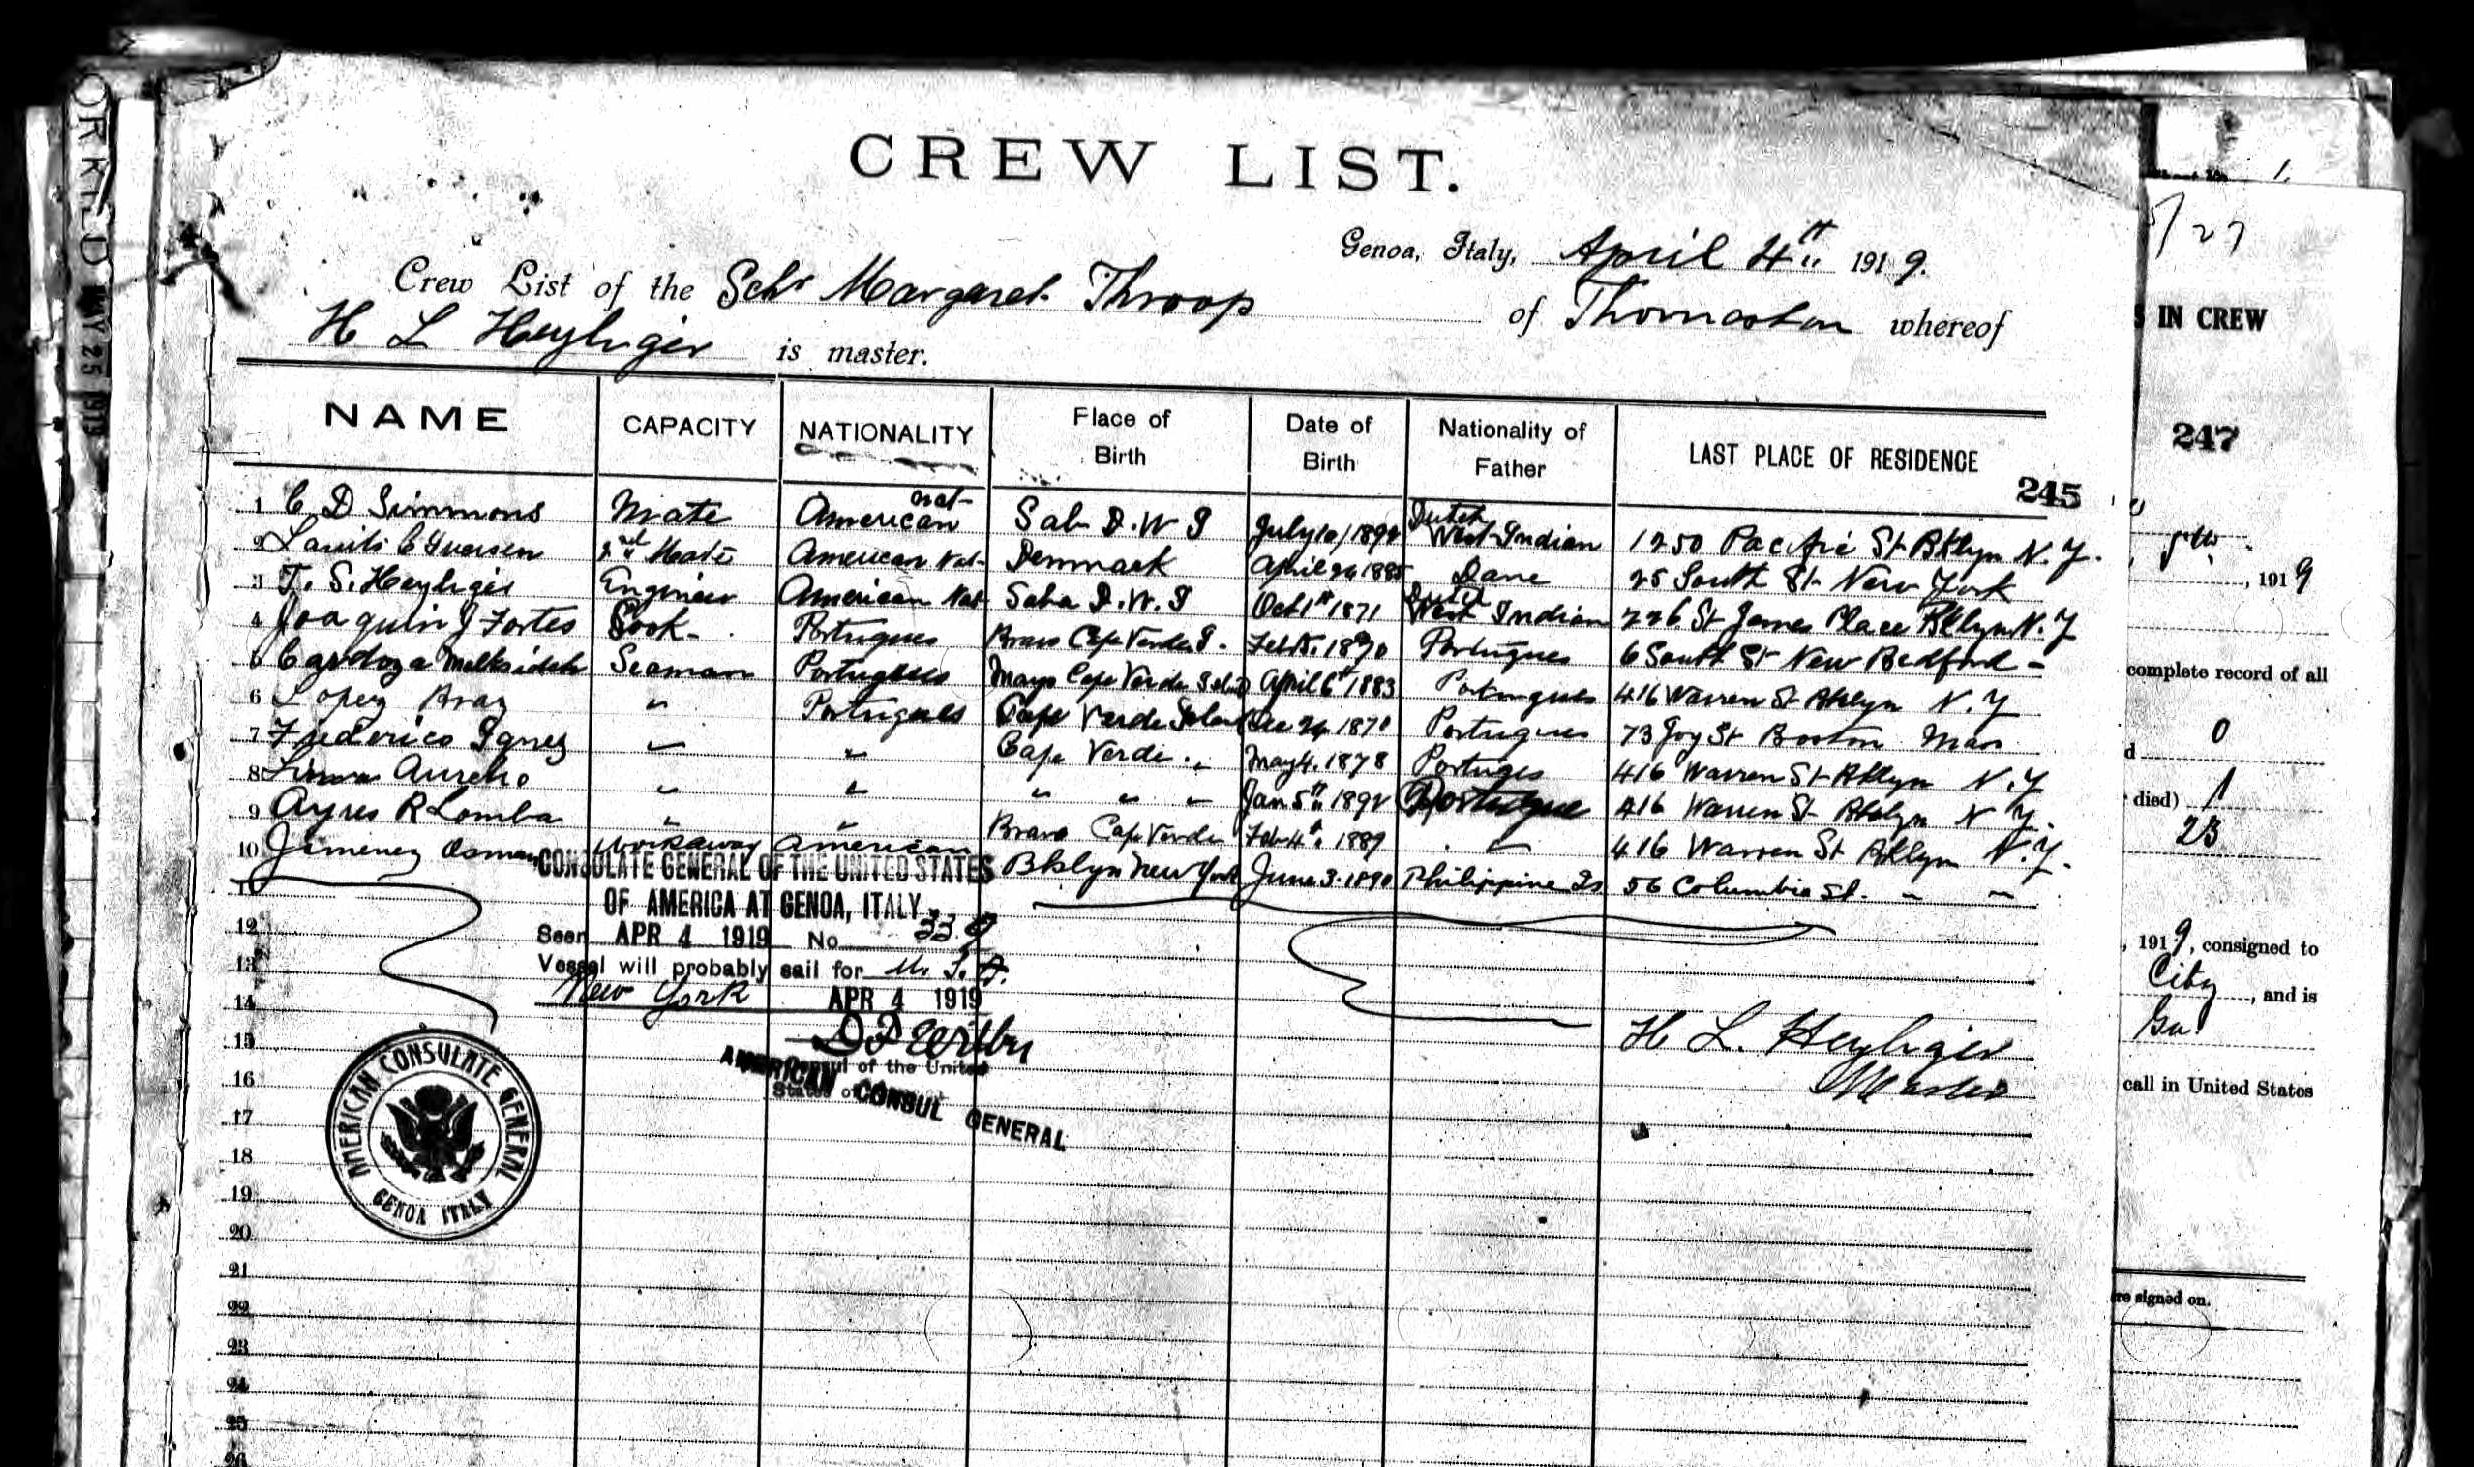 CREW LIST.
Genoa, Italy, April 4th 1919.
Crew List of the Schr Margaret Throop of Thomaston whereof
H L Heyliger is master.
NAME CAPACITY NATIONALITY Place of Birth Date of Birth Nationality of Father LAST PLACE OF RESIDENCE
245
1 C D Simmons Mate American nat- Sab D.W I July 10/ Dutch West Indian 1250 Pacific St Bklyn N.Y.
2 Lauits C Iversen 2nd Mate American Nat- Denmark April 26 1885 Dane 25 South St New York
3 T. S. Heyliger Engineer American Nat Saba D.W.I Oct 1st 1871 Dutch West Indian 226 St James Place Bklyn N.Y
4 Joaquin J Fortes Cook - Portugues Bravo Cape Verde I. Feb 15. 1890 Portugues 6 South St New Bedford -
5 Cardoza Seaman Portuguees Mayo Cape Verde April 6th 1883 Portugues 416 Warren St Bklyn N.Y
6 Lopez " Portugues Cape Verde Island Dec 24 1870 Portugues 73 Joy St Boston Mass
7 Frederico Ignez " " Cape Verde " May 4. 1878 Portuges 416 Warren St Bklyn N.Y
8 Aurelio " " " " " Jan 5th 189 Portugue 416 Warren St Bklyn N Y.
9 Ayres R Lomba " " Bravo Cape Verde Feb 4th 1889 . " 416 Warren St Bklyn N.Y.
10 Jimenez Osman Workaway American Bklyn New York June 3. 1890 Philippine Is 56 Columbia St. " "
11
12
13
14
15
16
17
18
19
20
21
22
23
24
25
26
CONSULATE GENERAL OF THE UNITED STATES
OF AMERICA AT GENOA, ITALY
Seen APR 4 1919 No 339
Vessel will probably sail for U. S. A.
New York APR 4 1919
D F Wilber
Consul of the United
States of
AMERICAN CONSUL GENERAL
AMERICAN CONSULATE GENERAL
GENOA ITALY
H L. Heyliger
Master
MAY 25 1919
/27
IN CREW
247
, 1919
complete record of all
0
d
died) 1
23
, 1919, consigned to
City, and is
call in United States
re signed on.